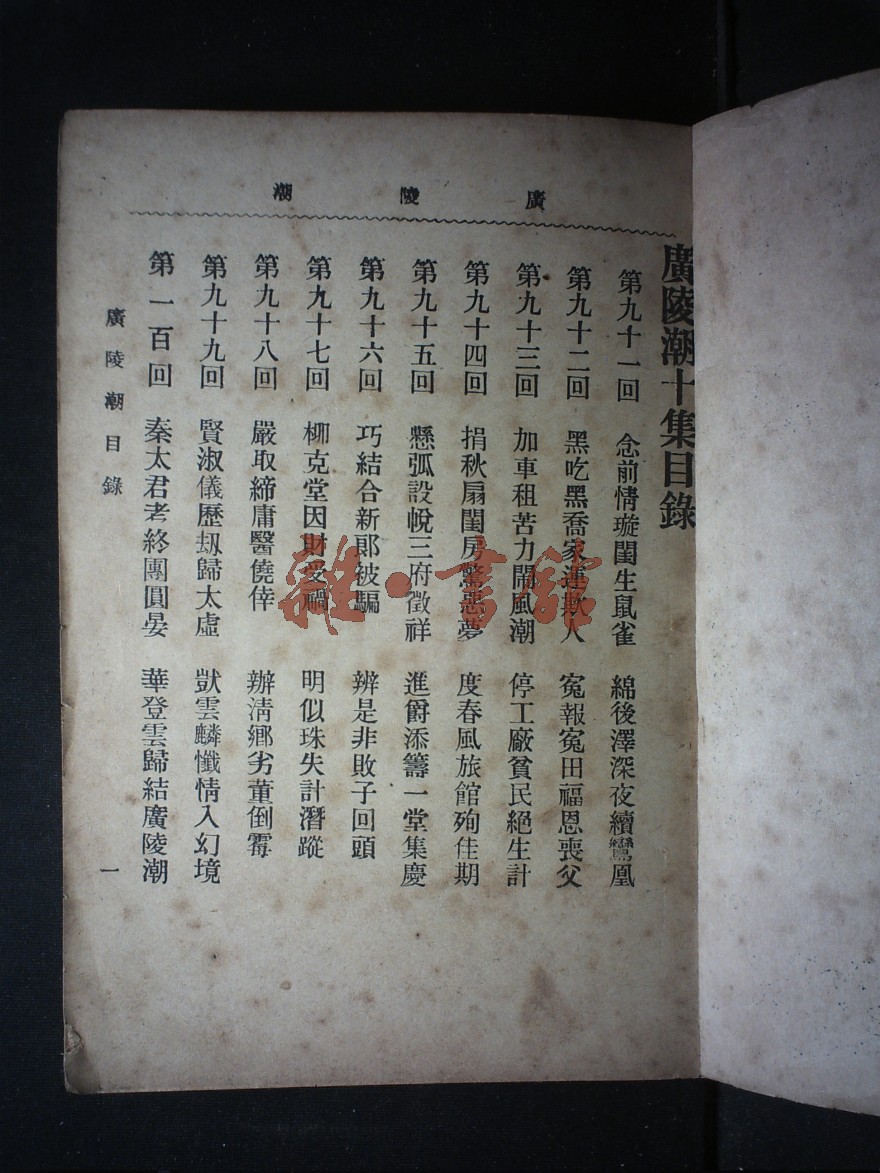 廣陵潮
廣陵潮十集目錄
第九十一回 念前情璇閨生鼠雀 綿後澤深夜續鸞凰
第九十二回 黑吃黑喬家運欺人 寃報寃田福恩喪父
第九十三回 加車租苦力鬧風潮 停工廠貧民絕生計
第九十四回 捐秋扇閨房驚惡夢 度春風旅館殉佳期
第九十五回 懸弧設帨三府徵祥 進爵添籌一堂集慶
第九十六回 巧結合新郎被騙 辨是非敗子回頭
第九十七回 柳克堂因財受禍 明似珠失計潛蹤
第九十八回 嚴取締庸醫僥倖 辦淸鄉劣董倒霉
第九十九回 賢淑儀歷刼歸太虛 獃雲麟懺情入幻境
第一百回 秦太君考終團圓宴 華登雲歸結廣陵潮
廣陵潮目錄
一
雜·書館